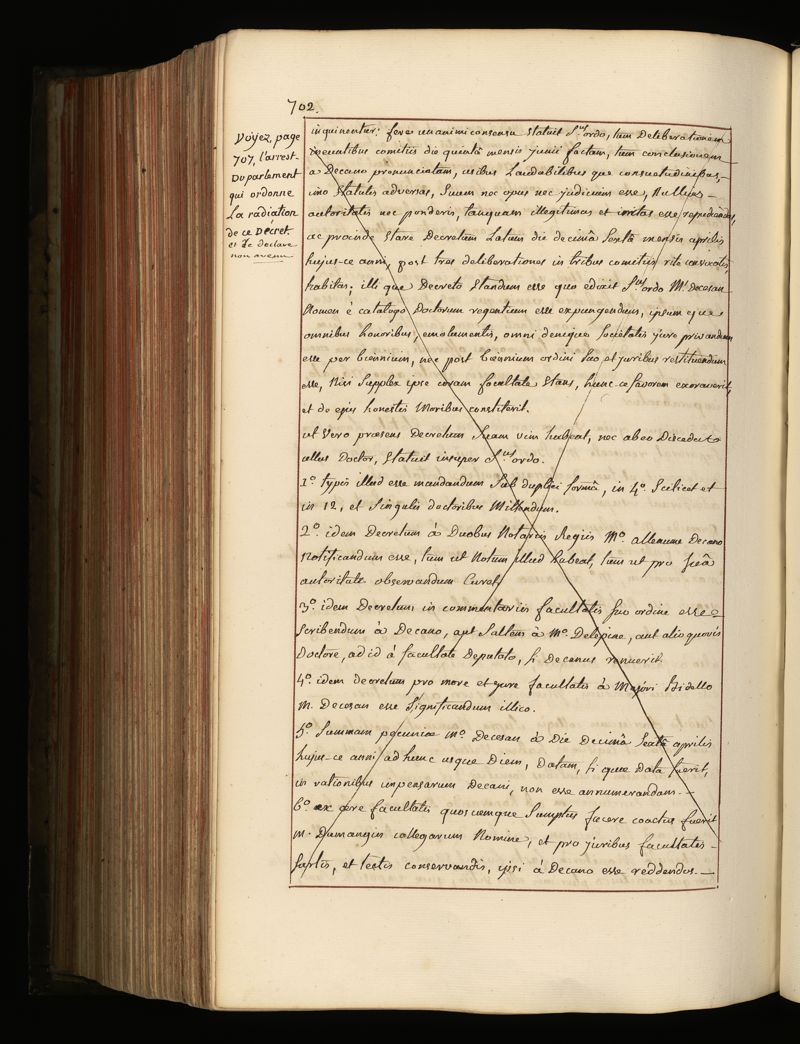 702.
Voyez, page
707, l'arrest
Du parlement
qui ordonne
La radiation
de ce Decret
et Le declare
non avenu
inquinentur; fere unanimi consensu Statuit S.us ordo, tum Deliberationem
ineuntibus comitiis die quintâ mensis junii factam, tum conclusionem
a Decano pronunciatam, usibus Laudabilibus que consuetudinibus,
imo Statutis adversas, Suem nec opus nec judicium esse, Nullius
autoritatis nec ponderis, tanquam illegitimas et irritas esse repudiandas,
ac proinde Stare Decretum Latum die decimâ Sextâ mensis aprilis
hujus-ce anni, post tres deliberationes in tribus comitiis rite convocatis
habitas; illi que Decreto Standum esse quo edixit S.us ordo M.i Decesan
Nomen è catalogo Doctorum regentium esse expungendum, ipsum que
omnibus honoribus, emolumentis, omni denique Societatis jure privandum
esse per biennium, nec post biennium ordini Suo et juribus restituendum
esse, Nisi Supplex ipse coram facultate Stans, hunc-ce favorem exoraverit,
et de ejus honestis Moribus constiterit.
ut Vero præsens Decretum Suam vim habeat, nec ab eo Discedat
ullus Doctor, Statuit insuper S.us ordo.
1.º typis illud esse mandandum Sub duplici formâ, in 4.º Scilicet et
in 12, et Singulis doctoribus Mittendum.
2.º idem Decretum à Duobus Notariis Regiis M.º alleaume Decano
Notificandum esse, tum ut Notum illud habeat, tum ut pro Suâ
autoritate observandum Curet.
3.º idem Decretum in commentariis facultatis Suo ordine esse
Scribendum à Decano, aut Saltem à M.º Delepine, aut alio quovis
Doctore, ad id à facultate Deputato, Si Decanus renuerit.
4.º idem decretum pro more et jure facultatis à Majori Bidello
M. Decesan esse Significandum illico.
5.º Summam pecuniæ M.º Decesan à Die Decimâ Sextâ aprilis
hujus-ce anni ad hunc usque Diem, Datam, Si quæ Data fuerit,
in rationibus impensarum Decani, non esse annumerandam.
6.º ex ære facultatis quoscumque Sumptus facere coactus fuerit
M. Dumangin collegarum Nomine, et pro juribus facultatis
Sartis, et tectis conservandis, ipsi à Decano esse reddendos.